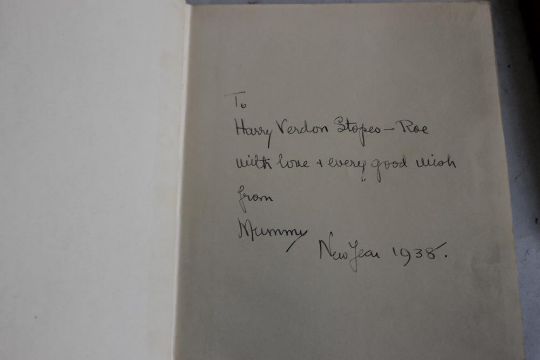 To
Harry Verdon Stopes-Roe
with love + every good wish
from
Mummy
New Year 1938.